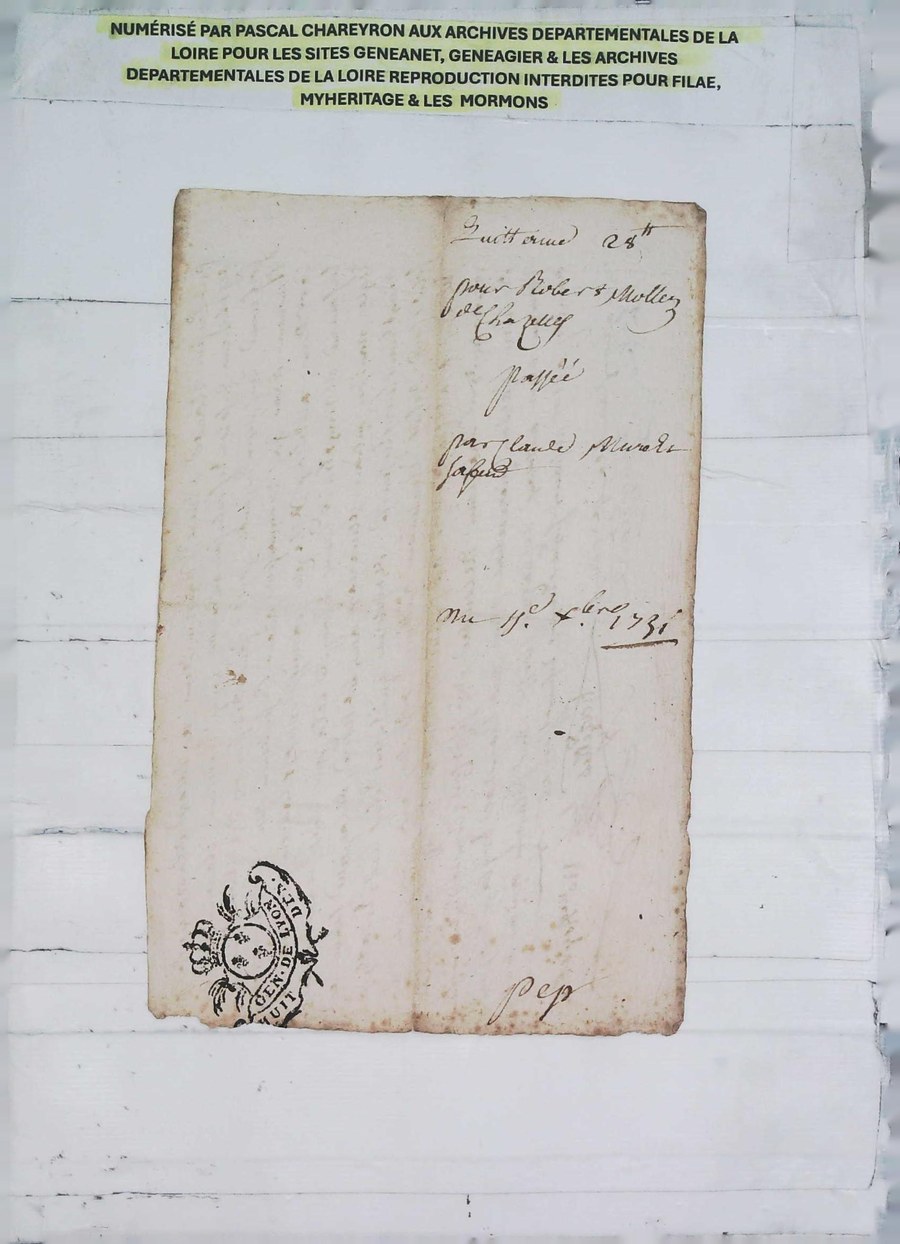 NUMÉRISÉ PAR PASCAL CHAREYRON AUX ARCHIVES DEPARTEMENTALES DE LA
LOIRE POUR LES SITES GENEANET, GENEAGIER & LES ARCHIVES
DEPARTEMENTALES DE LA LOIRE REPRODUCTION INTERDITES POUR FILAE,
MYHERITAGE & LES MORMONS
28tt
pour Robert Mollen
de Chazelles
passéé
par Claude
Du xbre 1731
GEN. DE LYON
DES.
HUIT
pep